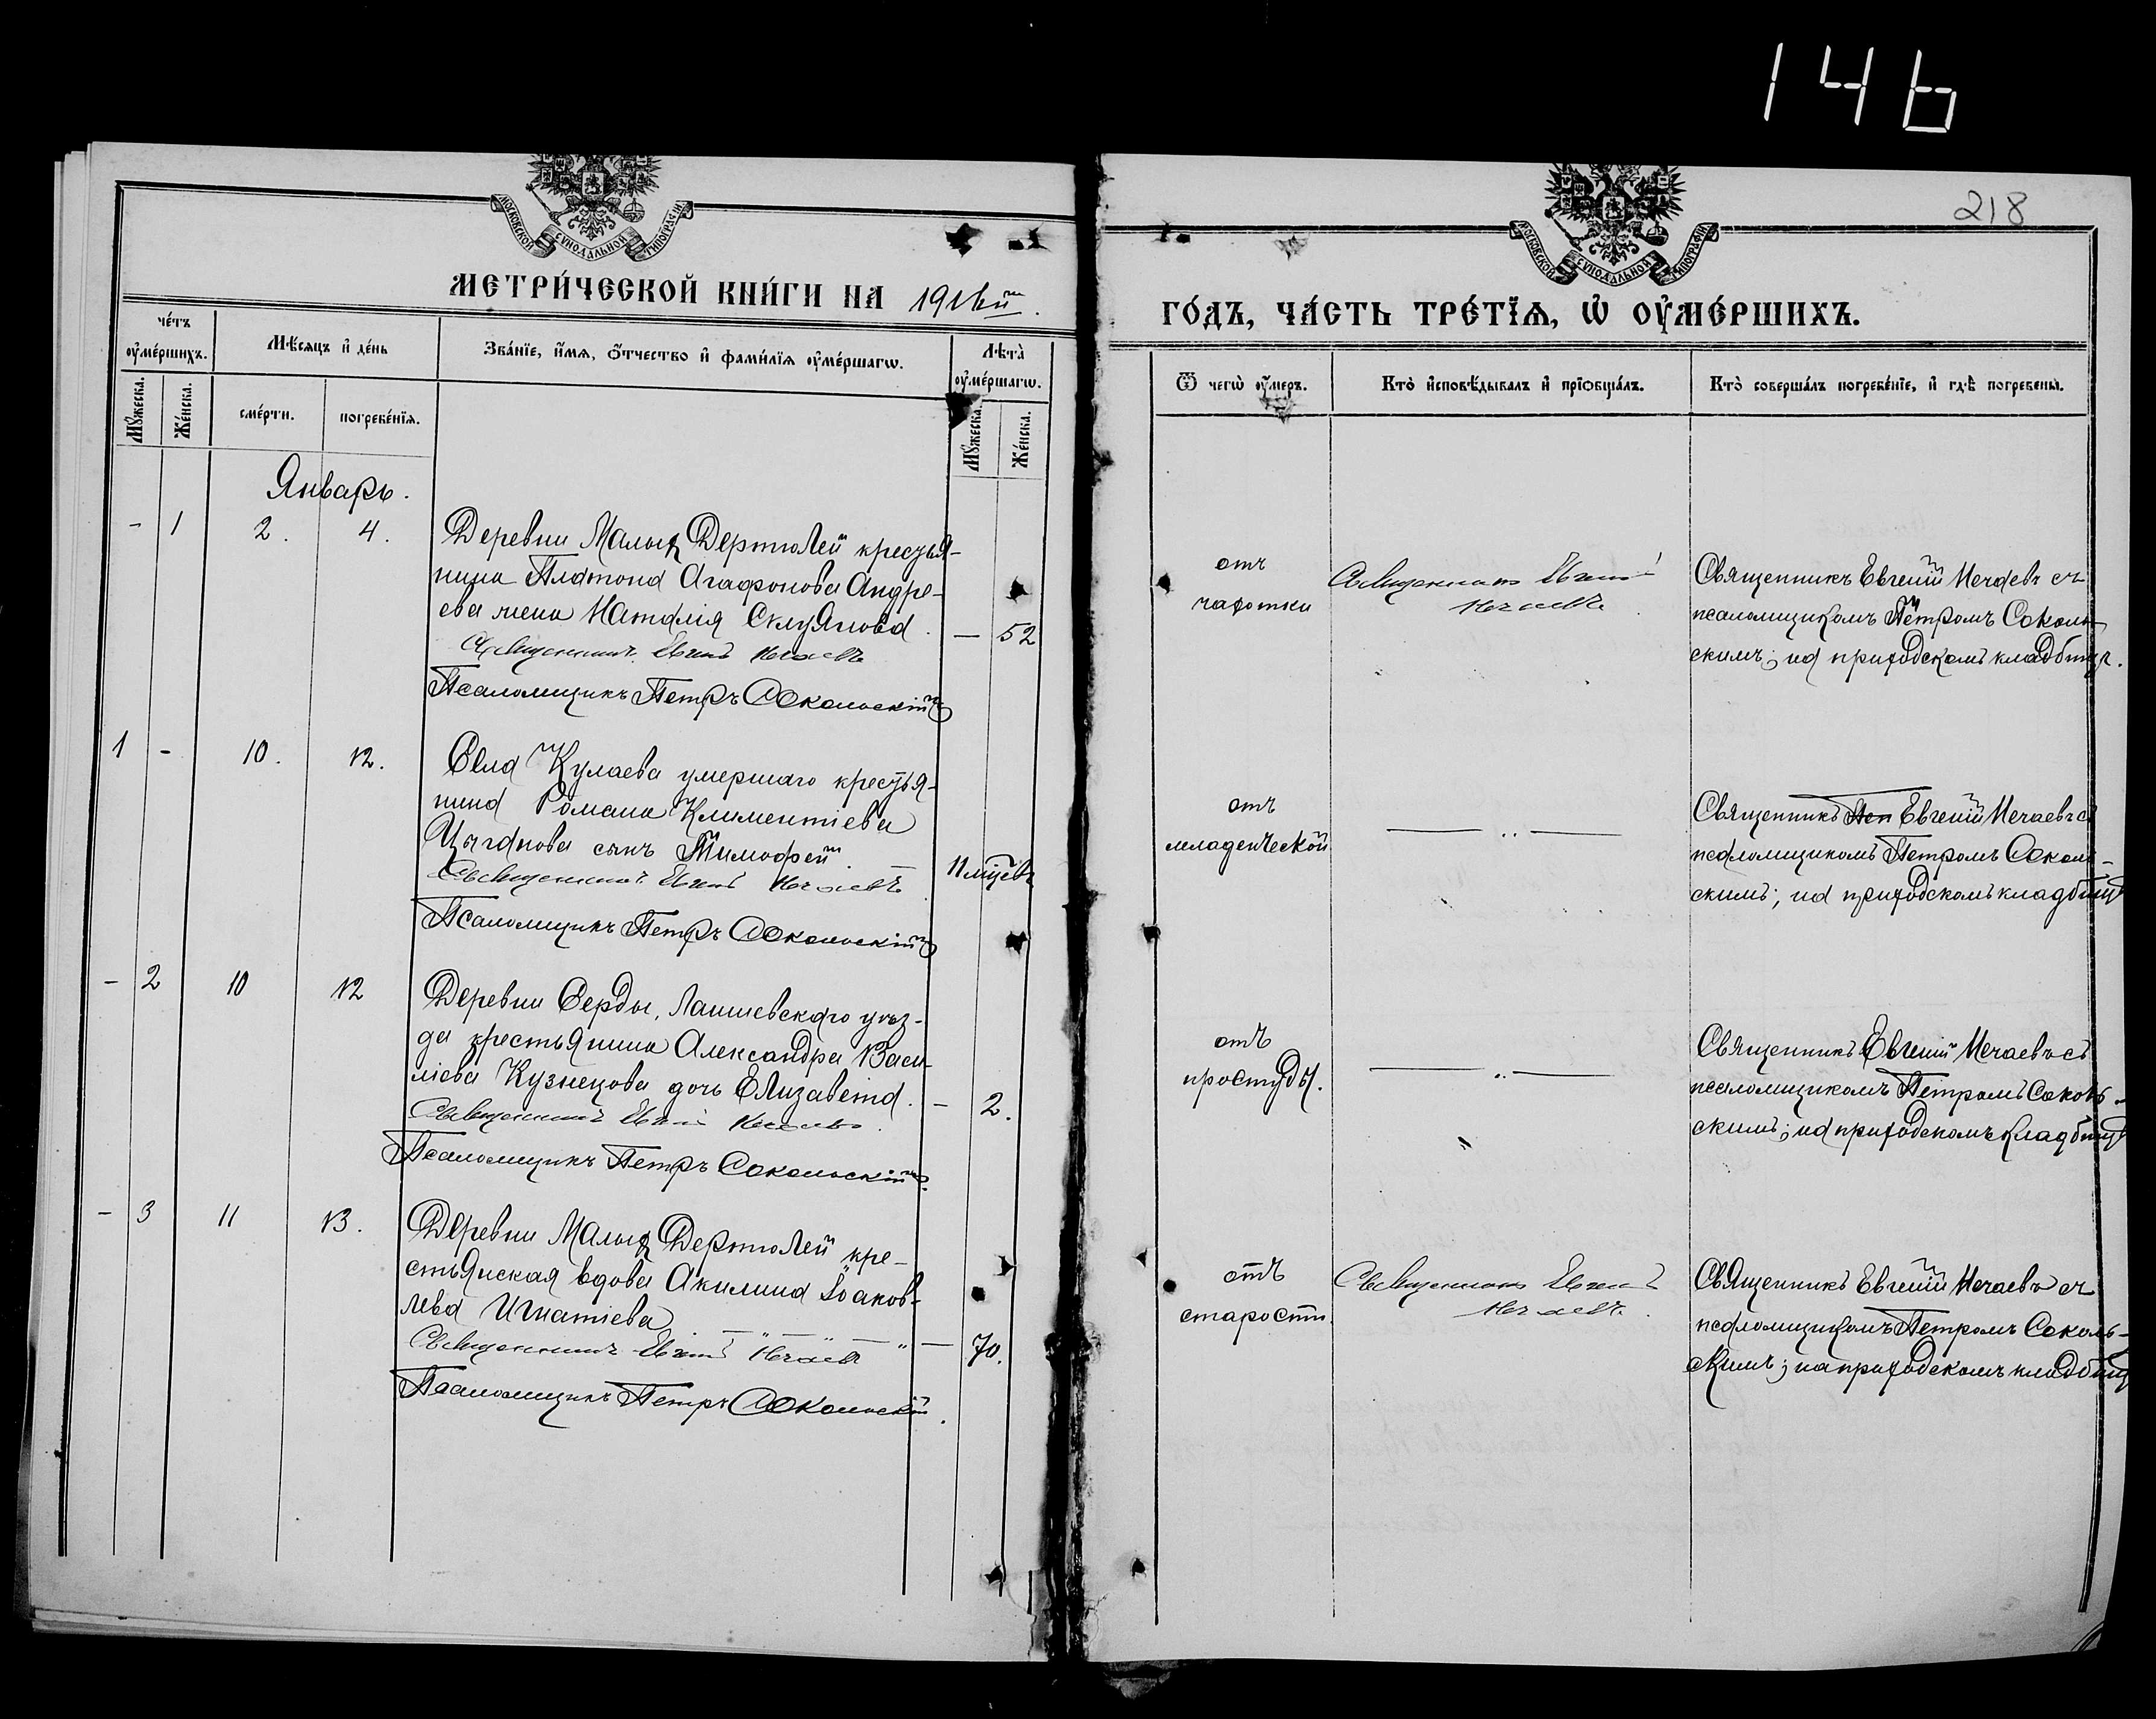 146
218
МОСКОВСКОЙ СѴНОДАЛЬНОЙ ТИПОГРАФІИ
МОСКОВСКОЙ СѴНОДАЛЬНОЙ ТИПОГРАФІИ
МЕТРИ́ЧЕСКОЙ КНИ́ГИ НА
ГО́ДЪ, ЧА́СТЬ ТРЕ́ТІѦ, Ѡ҆ ОУ҆МЕ́РШИХЪ.
че́тъ оу҆ме́ршихъ.
Мѣ́сяцъ и҆ де́нь
Зва́нїе, и҆́мѧ, ѻ҆́тчество и҆ фами́лїѧ оу҆ме́ршагѡ.
Лѣ́та̀ оу҆ме́ршагѡ.
Ѿ чегѡ̀ оу҆́меръ.
Кто̀ и҆сповѣ́дывалъ и҆ прїѡбща́лъ.
Кто̀ соверша́лъ погребе́нїе, и҆ гдѣ̀ погребены̀.
Мꙋ́жеска.
Же́нска.
сме́рти.
погребе́нїѧ.
Мꙋ́жеска.
Же́нска.
Январь.
- 1 2. 4.
Деревни Малых Дертюлей крестья-
нина Платона Агафонова Андре-
ева жена Наталія
— 52
Священникъ Евгеній Нечаевъ
Псаломщикъ Петръ Сокольскій
отъ
чахотки
Священникъ Евгеній
Нечаевъ
Священникъ Евгеній Нечаевъ съ
псаломщикомъ Петромъ Соколь-
скимъ; на приходскомъ кладбищѣ.
1 - 10. 12.
Села Кулаева умершаго крестья-
нина Романа Климентіева
Цыганова сынъ Тимофей.
11 мѣсцевъ
Священникъ Евгеній Нечаевъ
Псаломщикъ Петръ Сокольскій
отъ
младенческой
— .. —
Священникъ Евгеній Нечаевъ съ
псаломщикомъ Петромъ Соколь-
скимъ; на приходскомъ кладбищѣ
- 2 10 12
Деревни Серды, Лаишевскаго уѣз-
да крестьянина Александра Васи-
ліева Кузнецова дочь Елизавета.
- 2.
Священникъ Евгеній Нечаевъ
Псаломщикъ Петръ Сокольскій
отъ
простуды.
— .. —
Священникъ Евгеній Нечаевъ съ
псаломщикомъ Петромъ Соколь-
скимъ; на приходскомъ кладбищѣ
- 3 11 13.
Деревни Малых Дертюлей кре-
стьянская вдова Акилина Іоаков-
лева Игнатіева
— 70.
Священникъ Евгеній Нечаевъ
Псаломщикъ Петръ Сокольскій.
отъ
старости
Священникъ Евгеній
Нечаевъ.
Священникъ Евгеній Нечаевъ съ
псаломщикомъ Петромъ Соколь-
скимъ; на приходскомъ кладбищѣ